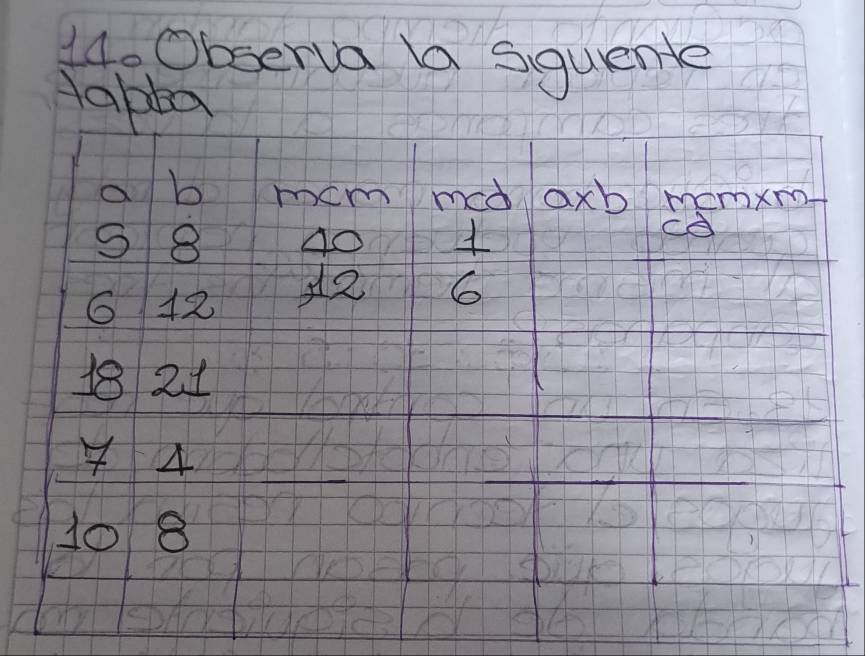 14. Observa la siguiente
tabba
a b mcm mcd axb mcmxm-
cd
5 8 40 1
6 12 12 6
18 21
7 4
10 8